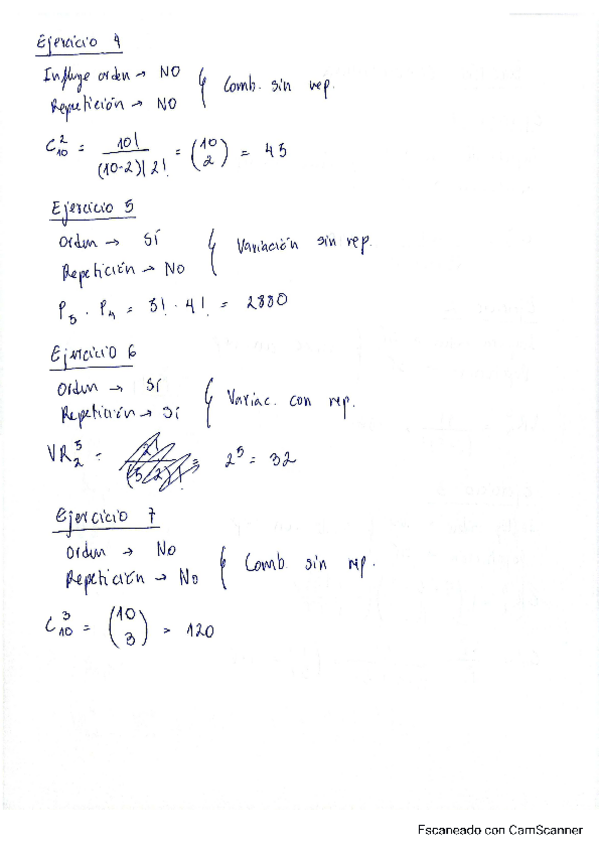 Ejercicio 4
Influye orden → NO
Repetición → NO } Comb. sin rep.
C₁₀² = 10! / (10-2)! 2! = (10 2) = 45
Ejercicio 5
Orden → SÍ
Repetición → NO } Variación sin rep.
P₅ · P₄ = 5! · 4! = 2880
Ejercicio 6
Orden → SÍ
Repetición → Sí } Variac. con rep.
VR₂⁵ = 2⁵ = 32
Ejercicio 7
Orden → No
Repetición → No } Comb. sin rep.
C₁₀³ = (10 3) = 120
Escaneado con CamScanner